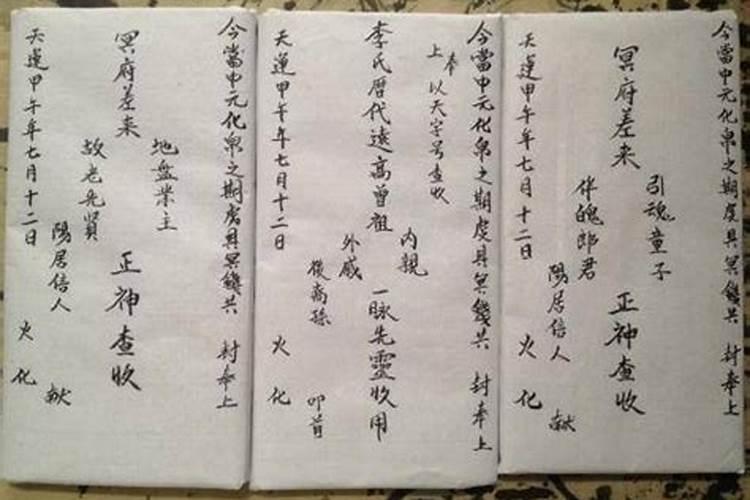 今當中元化帛之期虔具冥錢共 封奉上
引魂童子
冥府差来 正神查收
伴魄郎君
陽居信人 献
天運甲午年七月十二日 火化
今當中元化帛之期虔具冥錢共 封奉上
奉
上 以天字号查收
內親
李氏歴代遠高曾祖 一脉先靈收用
外戚
後裔孫 叩首
天運甲午年七月十二日 火化
今當中元化帛之期虔具冥錢共 封奉上
地盤業主
冥府差来 正神查收
故老先賢
陽居信人 献
天運甲午年七月十二日 火化